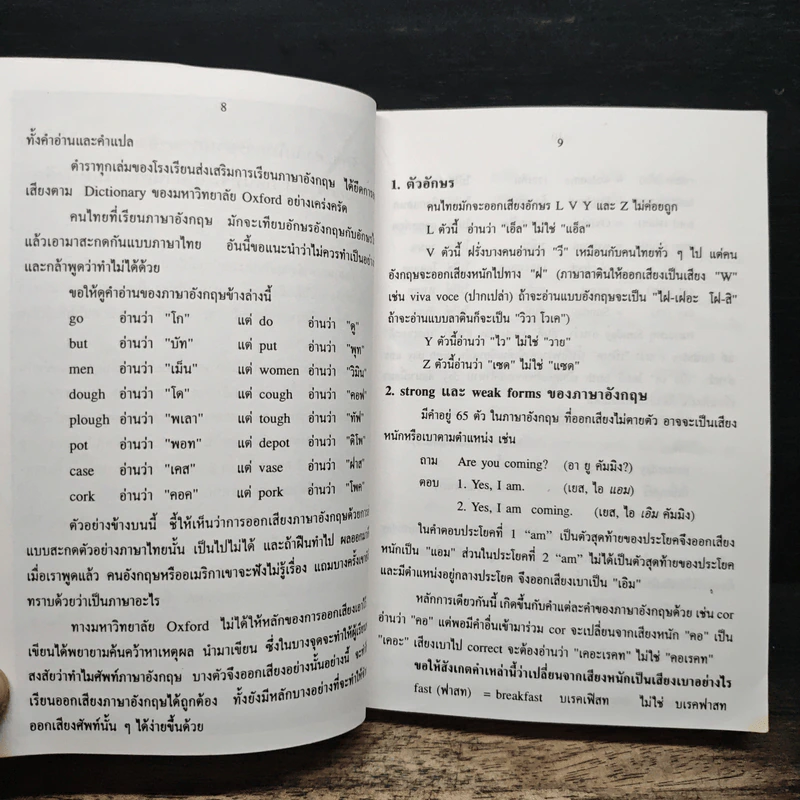 8
ทั้งคำอ่านและคำแปล
ตำราทุกเล่มของโรงเรียนส่งเสริมการเรียนภาษาอังกฤษ ได้ยึดการ
เสียงตาม Dictionary ของมหาวิทยาลัย Oxford อย่างเคร่งครัด
คนไทยที่เรียนภาษาอังกฤษ มักจะเทียบอักษรอังกฤษกับอักษร
แล้วเอามาสะกดกันแบบภาษาไทย อันนี้ขอแนะนำว่าไม่ควรทำเป็นอย่าง
และกล้าพูดว่าทำไม่ได้ด้วย
ขอให้ดูคำอ่านของภาษาอังกฤษข้างล่างนี้
go อ่านว่า "โก" แต่ do อ่านว่า "ดู"
but อ่านว่า "บัท" แต่ put อ่านว่า "พุท"
men อ่านว่า "เม็น" แต่ women อ่านว่า "วิมิน"
dough อ่านว่า "โด" แต่ cough อ่านว่า "คอฟ"
plough อ่านว่า "พเลา" แต่ tough อ่านว่า "ทัฟ"
pot อ่านว่า "พอท" แต่ depot อ่านว่า "ดิโพ"
case อ่านว่า "เคส" แต่ vase อ่านว่า "ฝาส"
cork อ่านว่า "คอค" แต่ pork อ่านว่า "โพค"
ตัวอย่างข้างบนนี้ ชี้ให้เห็นว่าการออกเสียงภาษาอังกฤษด้วยการ
แบบสะกดตัวอย่างภาษาไทยนั้น เป็นไปไม่ได้ และถ้าฝืนทำไป ผลออกมาก็
เมื่อเราพูดแล้ว คนอังกฤษหรืออเมริกาเขาจะฟังไม่รู้เรื่อง แถมบางครั้ง
ทราบด้วยว่าเป็นภาษาอะไร
ทางมหาวิทยาลัย Oxford ไม่ได้ให้หลักของการออกเสียงเอาไว้
เขียนได้พยายามค้นคว้าหาเหตุผล นำมาเขียน ซึ่งในบางจุดจะทำให้ผู้เรียน
สงสัยว่าทำไมศัพท์ภาษาอังกฤษ บางตัวจึงออกเสียงอย่างนั้นอย่างนี้
เรียนออกเสียงภาษาอังกฤษได้ถูกต้อง ทั้งยังมีหลักบางอย่างที่จะทำให้
ออกเสียงศัพท์นั้น ๆ ได้ง่ายขึ้นด้วย
9
1. ตัวอักษร
คนไทยมักจะออกเสียงอักษร L V Y และ Z ไม่ค่อยถูก
L ตัวนี้ อ่านว่า "เอ็ล" ไม่ใช่ "แอ็ล"
V ตัวนี้ ฝรั่งบางคนอ่านว่า "วี" เหมือนกับคนไทยทั่ว ๆ ไป แต่คน
อังกฤษจะออกเสียงหนักไปทาง "ฝ" (ภาษาลาตินให้ออกเสียงเป็นเสียง "W"
เช่น viva voce (ปากเปล่า) ถ้าจะอ่านแบบอังกฤษจะเป็น "ไฝ-เฝอะ โฝ-สิ"
ถ้าจะอ่านแบบลาตินก็จะเป็น "วิวา โวเค")
Y ตัวนี้อ่านว่า "ไว" ไม่ใช่ "วาย"
Z ตัวนี้อ่านว่า "เซด" ไม่ใช่ "แซด"
2. strong และ weak forms ของภาษาอังกฤษ
มีคำอยู่ 65 ตัว ในภาษาอังกฤษ ที่ออกเสียงไม่ตายตัว อาจจะเป็นเสียง
หนักหรือเบาตามตำแหน่ง เช่น
ถาม Are you coming? (อา ยู คัมมิง?)
ตอบ 1. Yes, I am. (เยส, ไอ แอม)
2. Yes, I am coming. (เยส, ไอ เอิม คัมมิง)
ในคำตอบประโยคที่ 1 "am" เป็นตัวสุดท้ายของประโยคจึงออกเสียง
หนักเป็น "แอม" ส่วนในประโยคที่ 2 "am" ไม่ได้เป็นตัวสุดท้ายของประโยค
และมีตำแหน่งอยู่กลางประโยค จึงออกเสียงเบาเป็น "เอิม"
หลักการเดียวกันนี้ เกิดขึ้นกับคำแต่ละคำของภาษาอังกฤษด้วย เช่น cor
อ่านว่า "คอ" แต่พอมีคำอื่นเข้ามาร่วม cor จะเปลี่ยนจากเสียงหนัก "คอ" เป็น
"เคอะ" เสียงเบาไป correct จะต้องอ่านว่า "เคอะเรคท" ไม่ใช่ "คอเรคท"
ขอให้สังเกตคำเหล่านี้ว่าเปลี่ยนจากเสียงหนักเป็นเสียงเบาอย่างไร
fast (ฟาสท) = breakfast บเรคเฟิสท ไม่ใช่ บเรคฟาสท